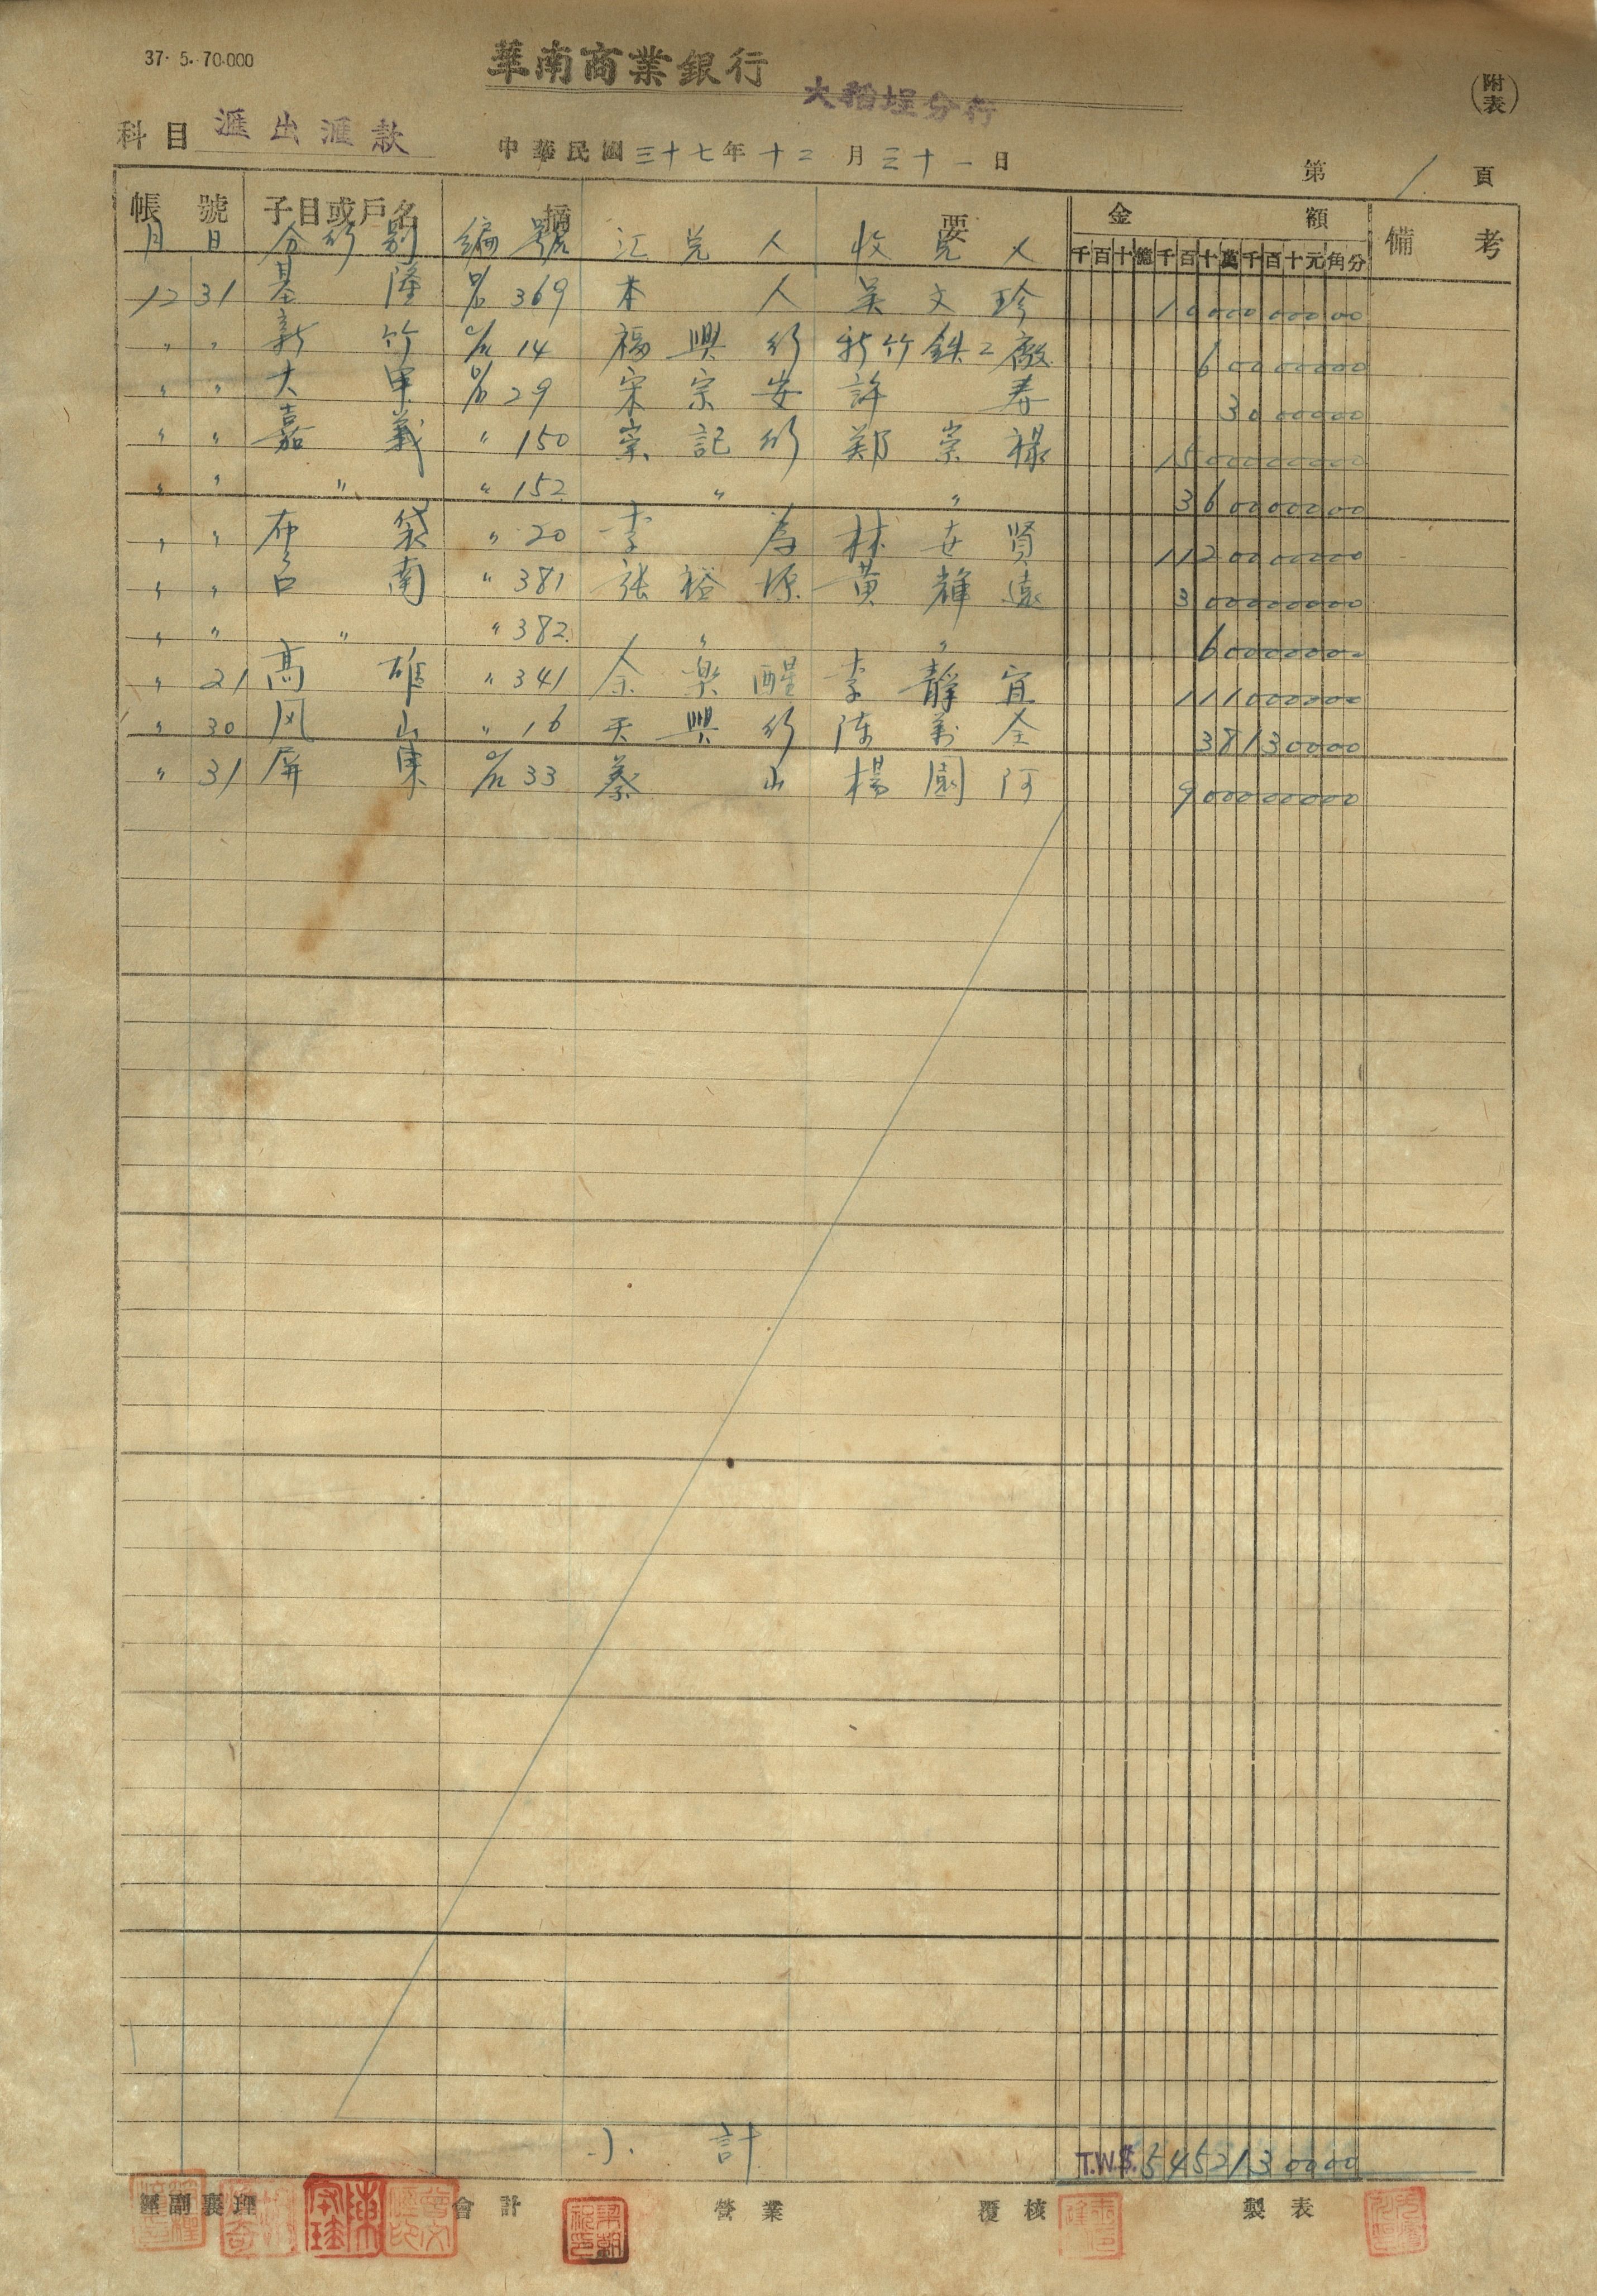 37. 5. 70.000
華南商業銀行 大稻埕分行
(附表)
科目 滙出滙款
中華民國三十七年十二月三十一日
第1頁
帳號 子目或戶名 摘要 金額 備考
月 日 分行別 編號 汇兌人 收兌人 千百十億千百十萬千百十元角分
12 31 基隆 369 本人 吴文珍 1000000000
〃 〃 新竹 14 福興行 新竹鉄工廠 60000000
〃 〃 大甲 29 宋宗安 許春 3000000
〃 〃 嘉義 〃 150 崇記行 鄭崇祿 1500000000
〃 〃 〃 〃 152 〃 〃 360000000
〃 〃 布袋 〃 20 李為 林世賢 1120000000
〃 〃 台南 〃 381 張裕源 黃輝遠 300000000
〃 〃 〃 〃 382 〃 〃 60000000
〃 21 高雄 〃 341 余樂醒 李靜宜 111000000
〃 30 风山 〃 16 天興行 陈萬全 38130000
〃 31 屏東 33 蔡山 楊園阿 900000000
小計 T.W.$. 5452130000
經副襄理 會計 營業 覆核 製表